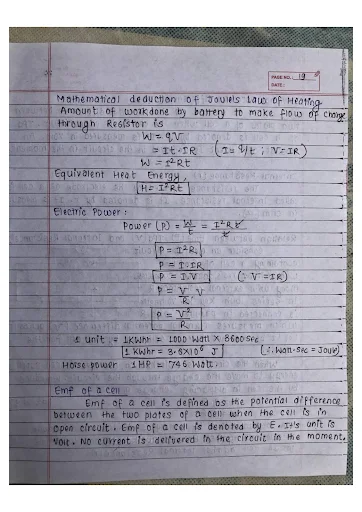 PAGE NO.: 19
DATE:
Mathematical deduction of Joule's Law of Heating
Amount of workdone by battery to make flow of charge
through Resistor is
W = qV
= It·IR (I = q/t ; V = IR)
W = I²Rt
Equivalent Heat Energy,
H = I²Rt
Electric Power:
Power (P) = W/t = I²Rt/t
P = I²R
P = I·IR
P = I·V (∵ V = IR)
P = V/R V
P = V²/R
1 unit = 1 KWhr = 1000 Watt × 3600 sec
1 KWhr = 3.6×10⁶ J (∴ Watt-sec = Joule)
Horse power 1HP = 746 Watt.
Emf of a cell
Emf of a cell is defined as the potential difference
between the two plates of a cell when the cell is in
open circuit. Emf of a cell is denoted by E. It's unit is
Volt. No current is delivered in the circuit in the moment.